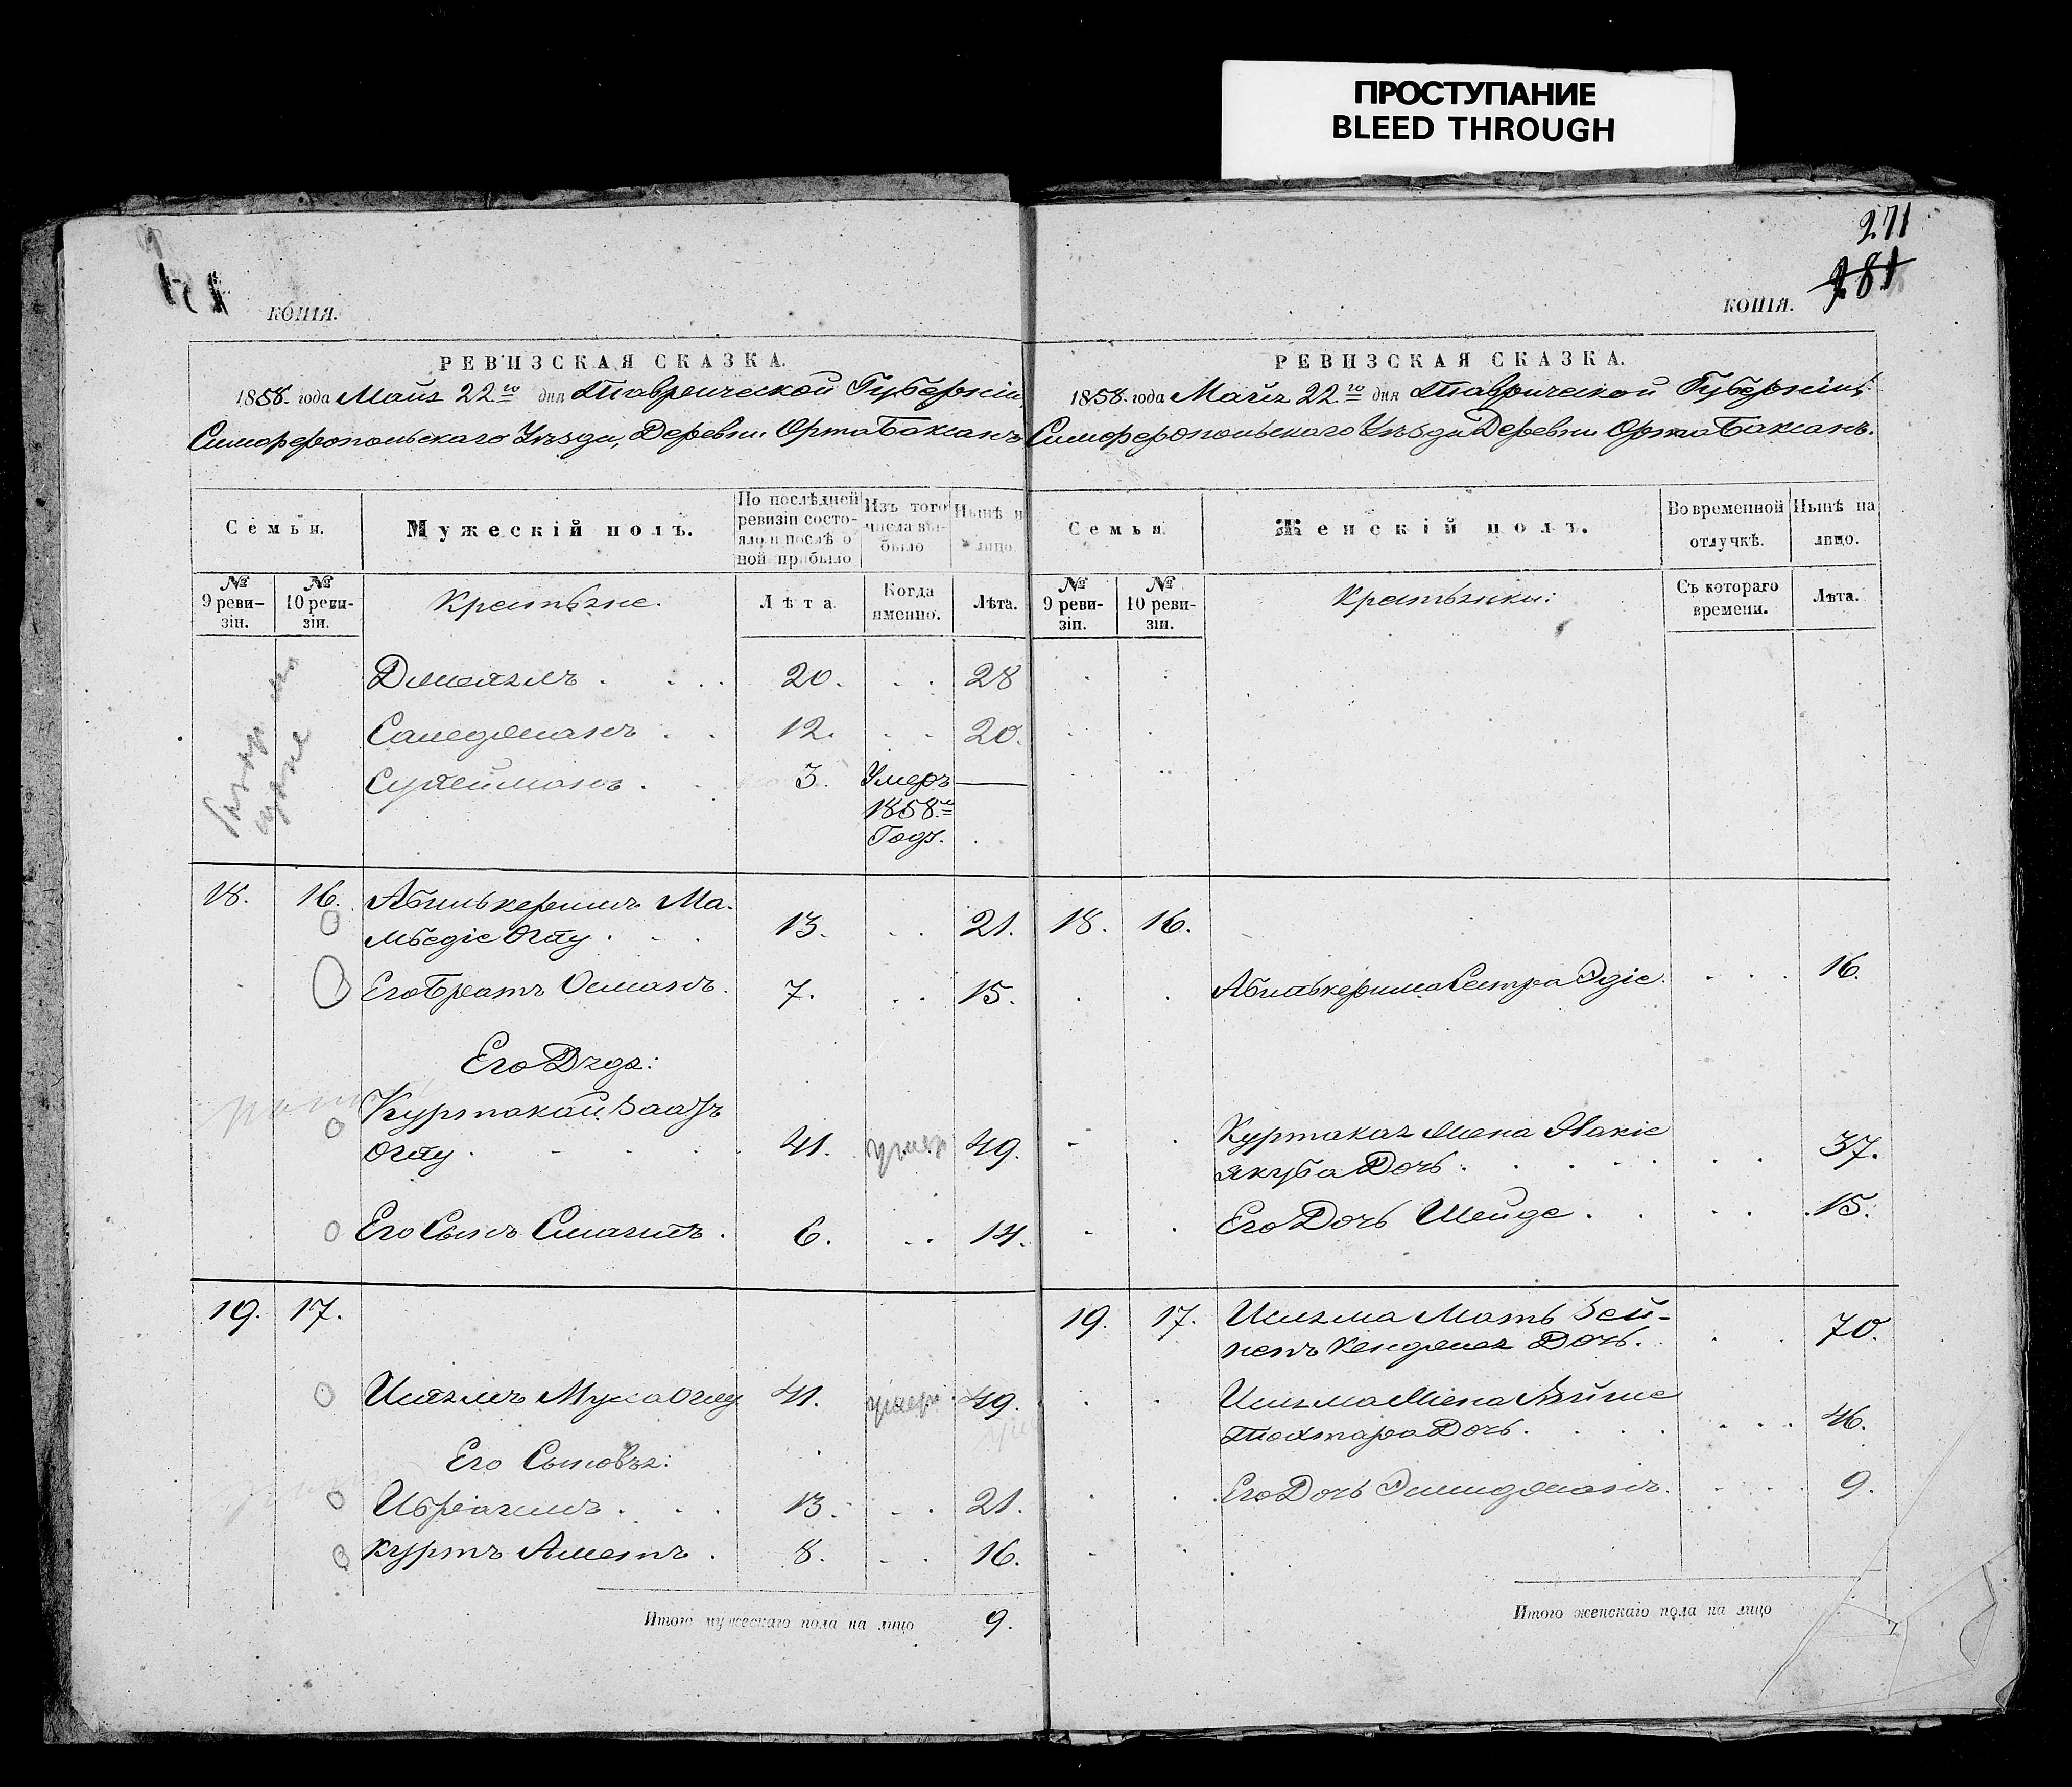 ПРОСТУПАНИЕ
BLEED THROUGH
271
281
КОПІЯ.
РЕВИЗСКАЯ СКАЗКА.
1858 года Мая 22го дня Таврической Губерніи,
Симферопольскаго Уѣзда, Деревни Орта Баксанъ
Семьи.
Мужескій полъ.
По послѣдней ревизіи состояло и послѣ оной прибыло
Изъ того числа выбыло
Нынѣ на лицо
№ 9 ревизіи.
№ 10 ревизіи.
Крестьяне.
Лѣта.
Когда именно.
Лѣта.
20. 28
12. 20.
Сулейманъ. 3. Умеръ
1858го
Годѣ.
18. 16. Абилькеримъ Ма-
мбедіе Оглу 13. 21.
Его Братъ Османъ. 7. 15.
Его Дядя:
Курткай Заатъ
Оглу 41. умер 49.
Его Сынъ Смаилъ. 6. 14.
19. 17.
Муса Оглу 41. умер 49.
Его Сыновья:
Ибраимъ 13. 21.
Куртъ Аметъ. 8. 16.
Итого мужескаго пола на лицо 9.
КОПІЯ.
РЕВИЗСКАЯ СКАЗКА.
1858 года Мая 22го дня Таврической Губерніи,
Симферопольскаго Уѣзда Деревни Орта Баксанъ.
Семьи.
Женскій полъ.
Во временной отлучкѣ.
Нынѣ на лицо.
№ 9 ревизіи.
№ 10 ревизіи.
Крестьянки:
Съ котораго времени.
Лѣта.
18. 16.
Абилькерима Сестра Эдіе. 16.
Курткая Жена
Якуба Дочь. 37.
Его Дочь Шейде. 15.
19. 17. Мать Зей-
непъ Дочь. 70.
Жена
Тохтара Дочь. 46.
Его Дочь 9.
Итого женскаго пола на лицо